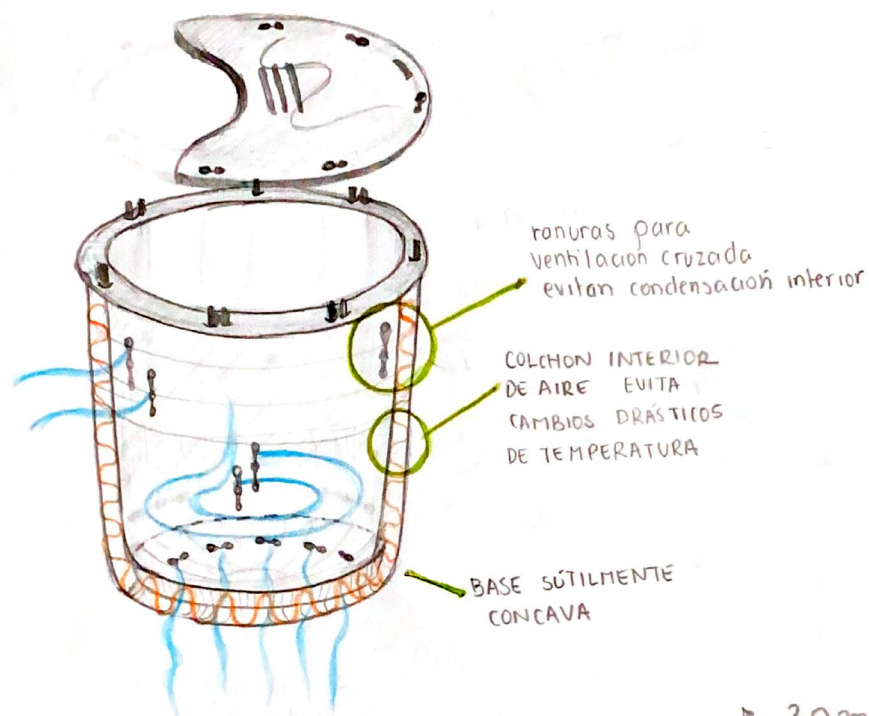 ranuras para
ventilación cruzada
evitan condensación interior
COLCHON INTERIOR
DE AIRE EVITA
CAMBIOS DRÁSTICOS
DE TEMPERATURA
BASE SÚTILMENTE
CONCAVA